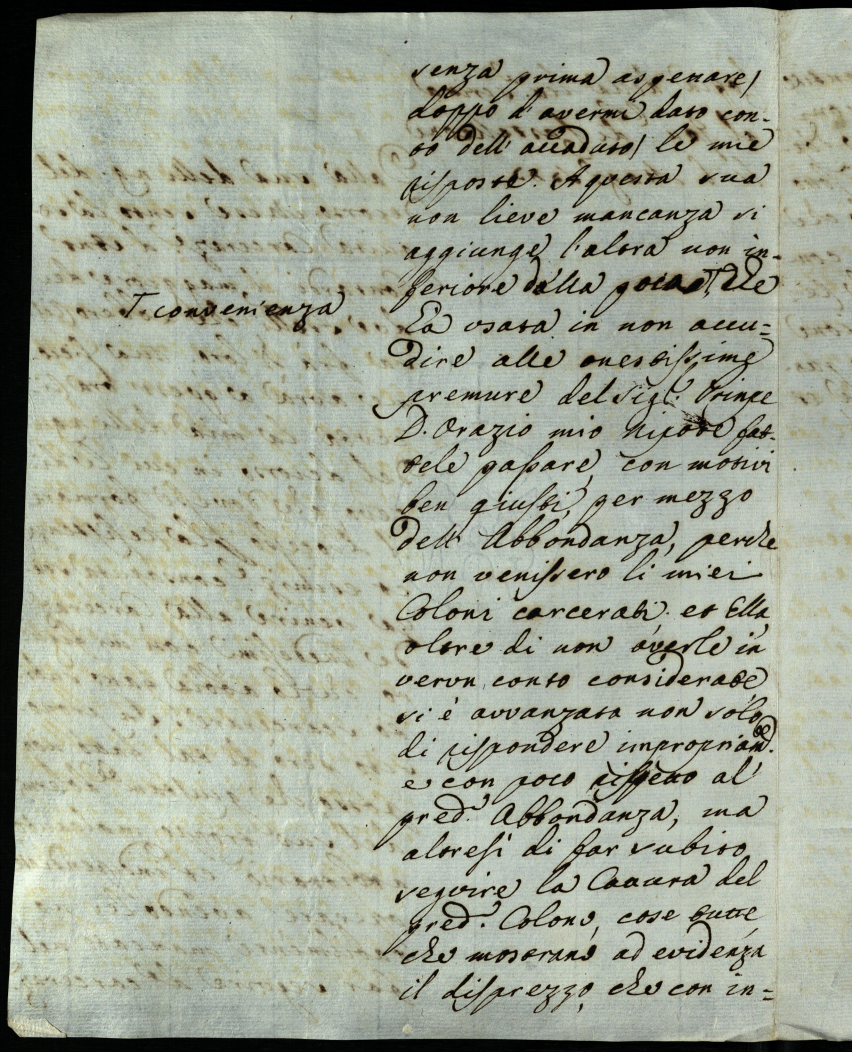 senza prima aspettare /
doppo d'avermi dato con-
to dell'accaduto / le mie
risposte. A questa sua
non lieve mancanza si
aggiunge l'altra non in-
feriore della poca T che
T convenienza
Ella usata in non accu=
dire alle onestissime
premure del Sig.r Prinpe
D. Orazio mio nipote fat-
tele passare, con motivi
ben giusti, per mezzo
dell' Abbondanza, perche
non venissero li miei
Coloni carcerati; et Ella
oltre di non averle in
verun conto considerate
si è avvanzata non solo
di rispondere impropriam.te
e con poco rispetto al
pred.o Abbondanza, ma
altresì di far subito
seguire la Cattura del
pred.o Colono, cose tutte
che mostrano ad evidenza
il disprezzo, che con in=